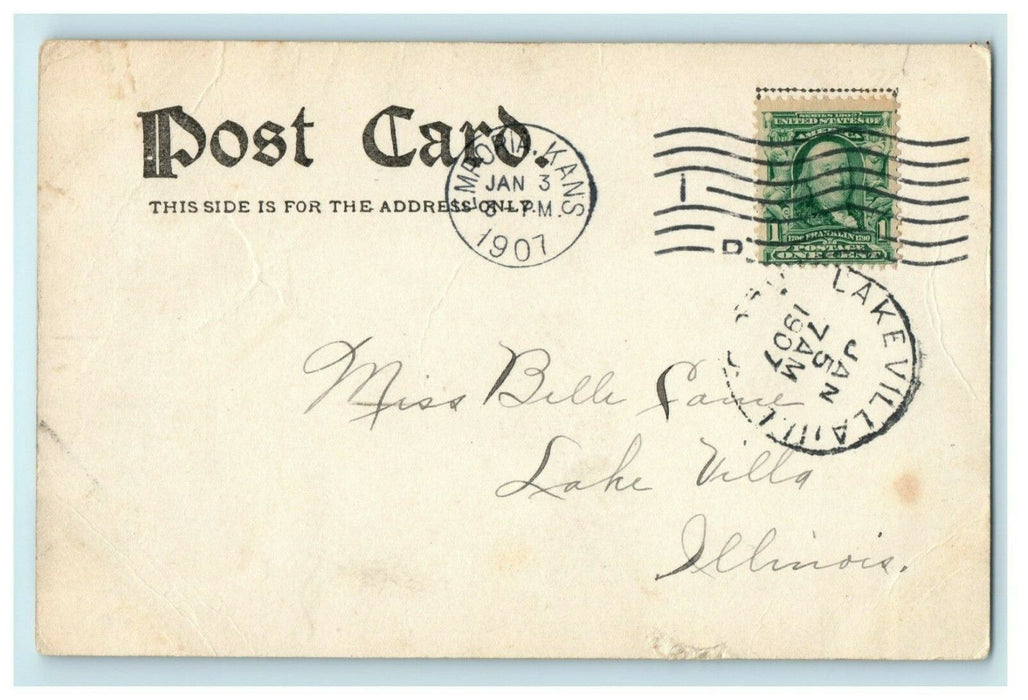 Post Card.
THIS SIDE IS FOR THE ADDRESS ONLY.
EMPORIA, KANS.
JAN 3
8 - P.M.
1907
1
SERIES 1902
UNITED STATES OF
AMERICA
1 1706 FRANKLIN 1790 1
POSTAGE
ONE CENT
LAKE VILLA, ILL.
JAN
5
7 AM
1907
Miss Belle
Lake Villa
Illinois.